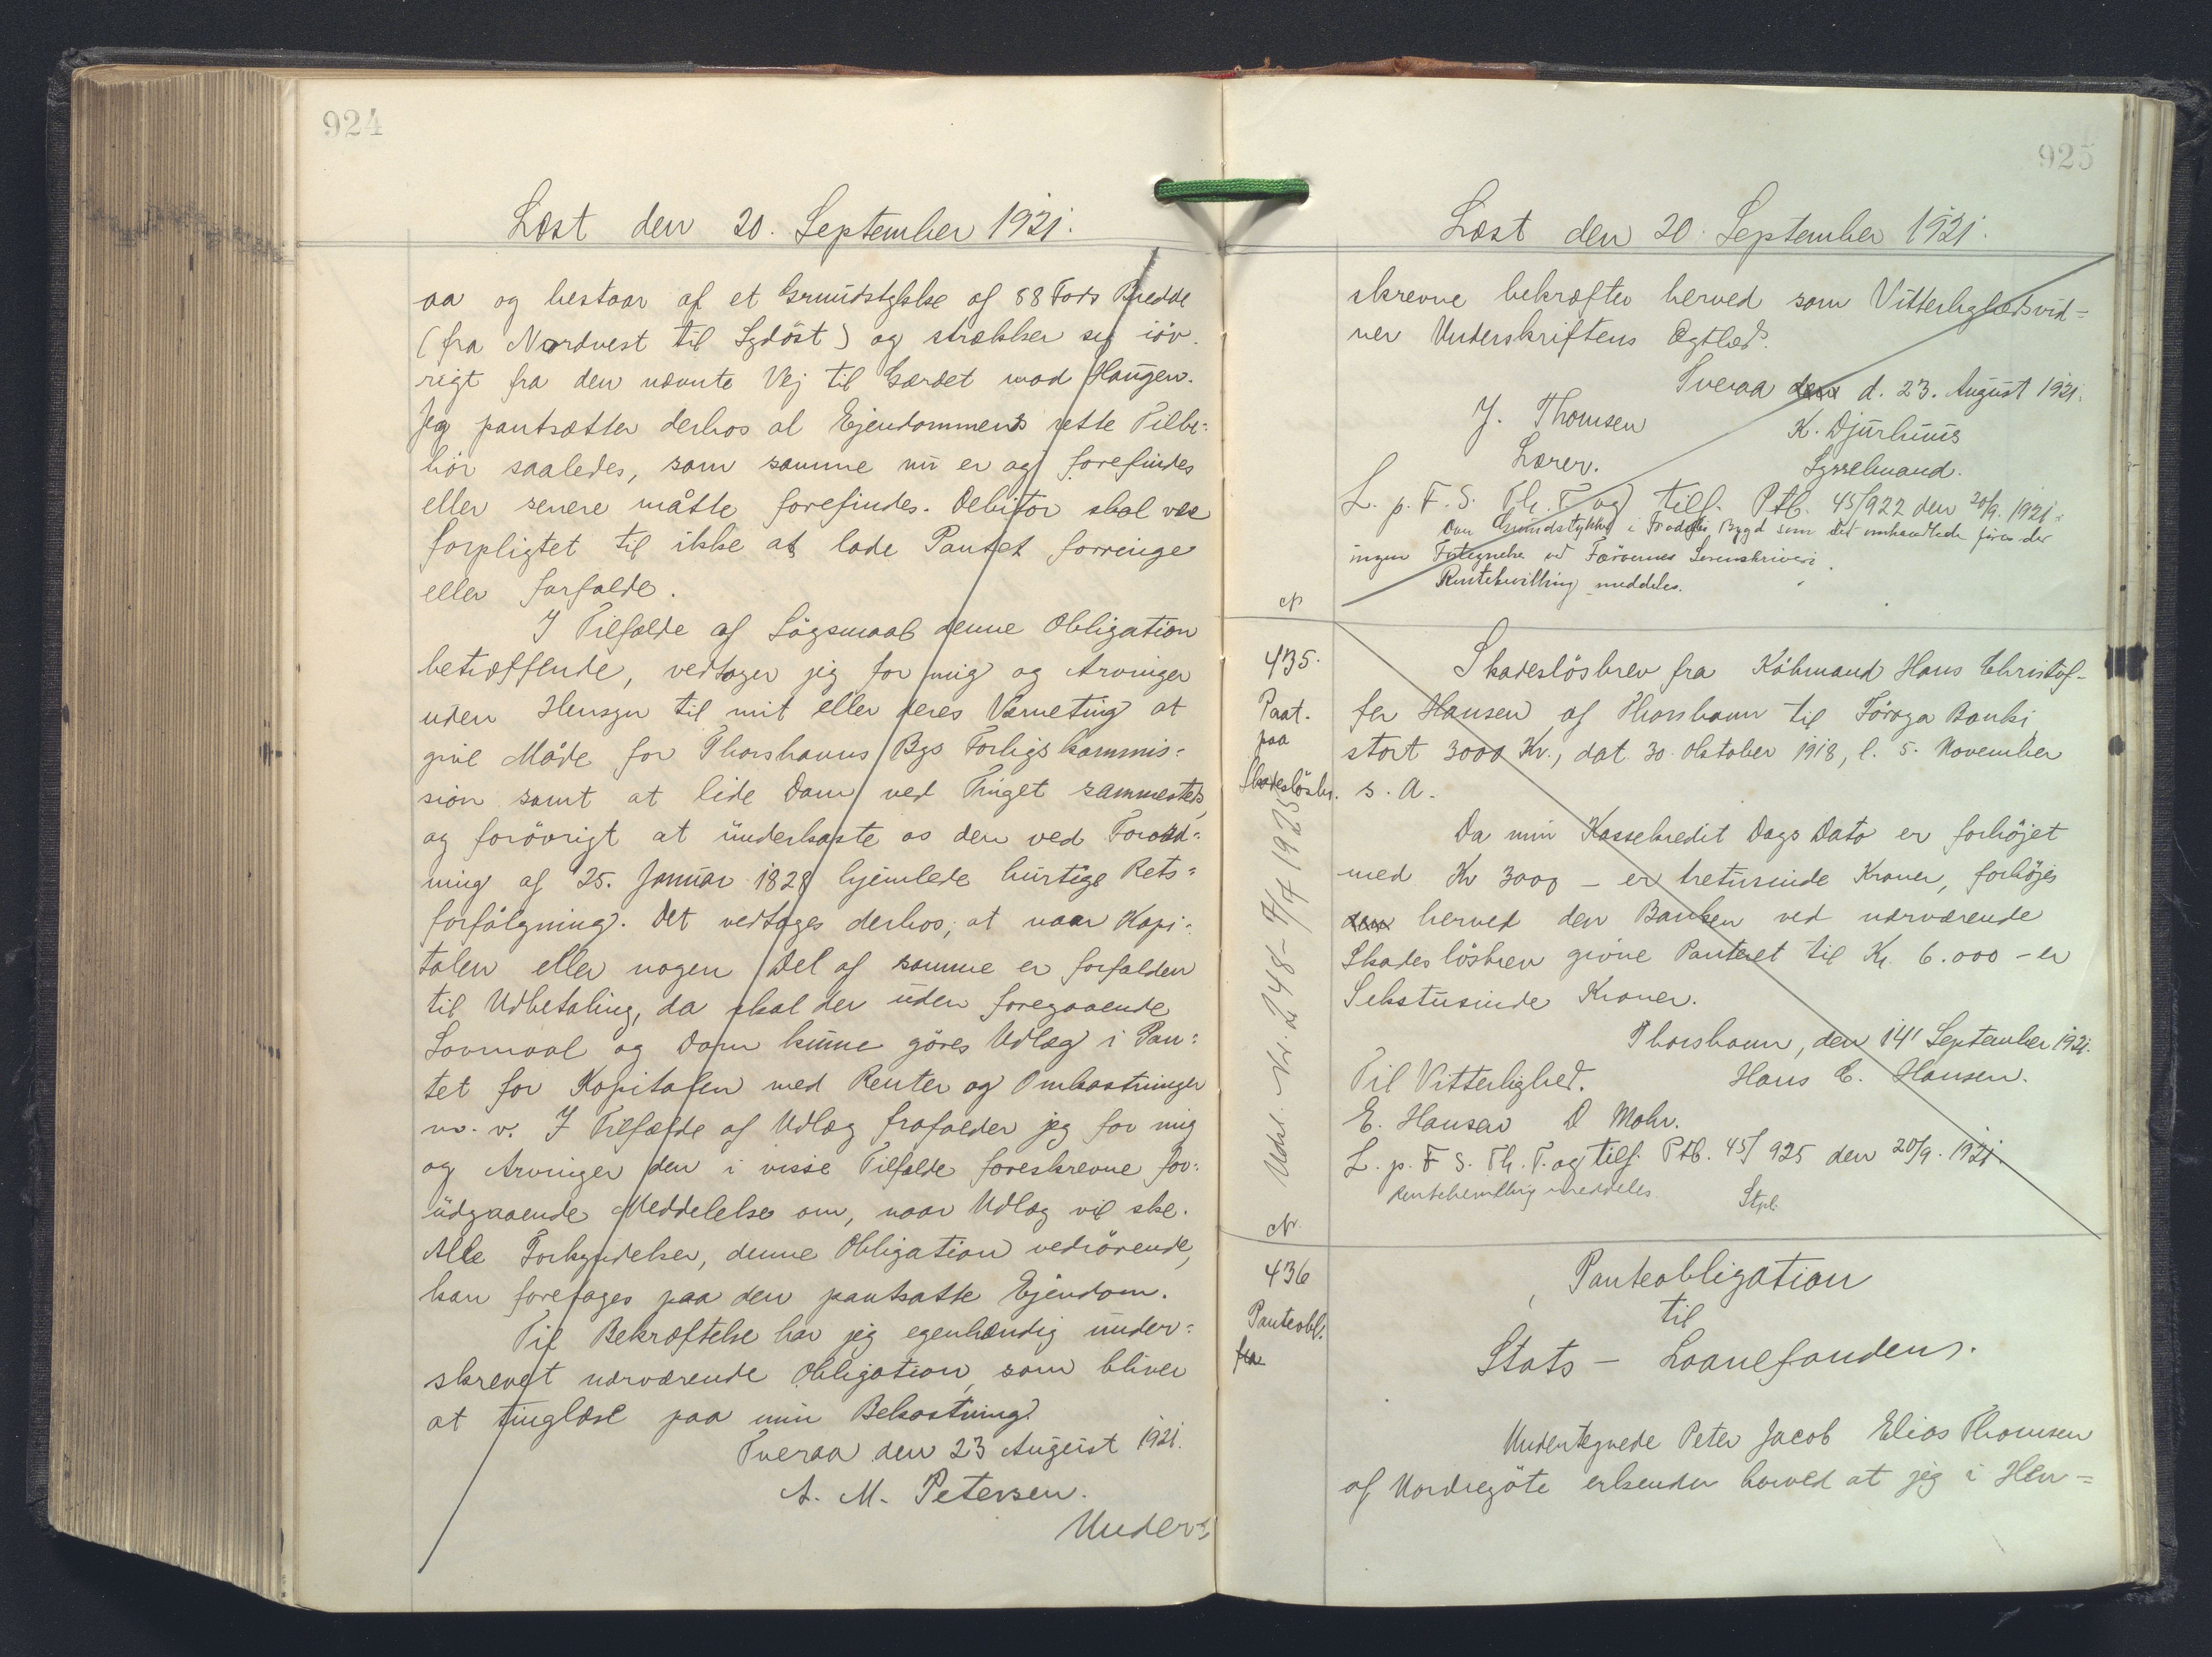 924
Læst den 20. September 1921.
aa og bestaar af et Grundstykke af 88 Fods Bredde
(fra Nordvest til Sydöst) og strækker sig iöv-
rigt fra den nævnte Vej til Gærdet mod Haugen.
Jeg pantsætter derhos al Ejendommens rette Tilbe-
hör saaledes, som samme nu er og forefindes
eller senere måtte forefindes. Debitor skal være
forpligtet til ikke at lade Pantet forringe
eller forfalde.
I Tilfælde af Sögsmaal denne Obligation
betræffende, vedtager jeg for mig og Arvinger
uden Hensyn til mit eller deres Værneting at
give Möde for Thorshavns Bys Forligskommis-
sion samt at lide Dom ved Tinget sammesteds,
og forövrigt at underkaste os den ved Forord-
ning af 25. Januar 1828 hjemlede hurtige Rets-
forfölgning. Det vedtages derhos, at naar Kapi-
talen eller nogen Del af samme er forfalden
til Udbetaling, da skal der uden foregaaende
Lovmaal og Dom kunne göres Udlæg i Pan-
tet for Kapitalen med Renter og Omkostninger
m. v. I Tilfælde af Udlæg frafalder jeg for mig
og Arvinger den i visse Tilfælde foreskrevne for-
udgaaende Meddelelse om, naar Udlæg vil ske.
Alle Forkyndelser, denne Obligation vedrörende,
kan foretages paa den pantsatte Ejendom.
Til Bekræftelse har jeg egenhændig under-
skrevet nærværende Obligation, som bliver
at tinglæse paa min Bekostning.
Tveraa den 23 August 1921.
A. M. Petersen.
Under-
925
Læst den 20. September 1921.
skrevne bekræfter herved som Vitterlighedsvid-
ner Underskriftens Ægthed.
Tveraa den d. 23. August 1921.
J. Thomsen K. Djurhuus
Lærer. Sysselmand.
L. p. F. S. Th. T. og tilf. Ptb. 45/922 den 20/9. 1921.
Om Grundstykker i Bygd som det omhandlede föres der
ingen Fortegnelse ved Færöernes Sorenskriveri.
Rentebevilling meddeles.
Nr.
435.
Paat.
paa
Skadeslösbr.
Udsl. Nr. 248- 7/4 1925
Skadeslösbrev fra Köbmand Hans Christof-
fer Hansen af Thorshavn til Föroya Banki
stort 3000 Kr., dat. 30. Oktober 1918, l. 5. November
s. A.
Da min Kassekredit Dags Dato er forhöjet
med Kr 3000 - er tretusinde Kroner, forhöjes
den herved den Banken ved nærværende
Skadeslösbrev givne Panteret til Kr. 6.000 - er
Sekstusinde Kroner.
Thorshavn, den 14' September 1921.
Til Vitterlighed. Hans C. Hansen.
E. Hansen D Mohr.
L. p. F S. Th. T. og tilf. Ptb. 45/925 den 20/9. 1921.
Rentebevilling meddeles. Stpl.
Nr.
436
Panteobl.
fra
Panteobligation
til
Stats - Laanefonden.
Undertegnede Peter Jacob Elias Thomsen
af Nordregöte erkender herved at jeg i Hen-